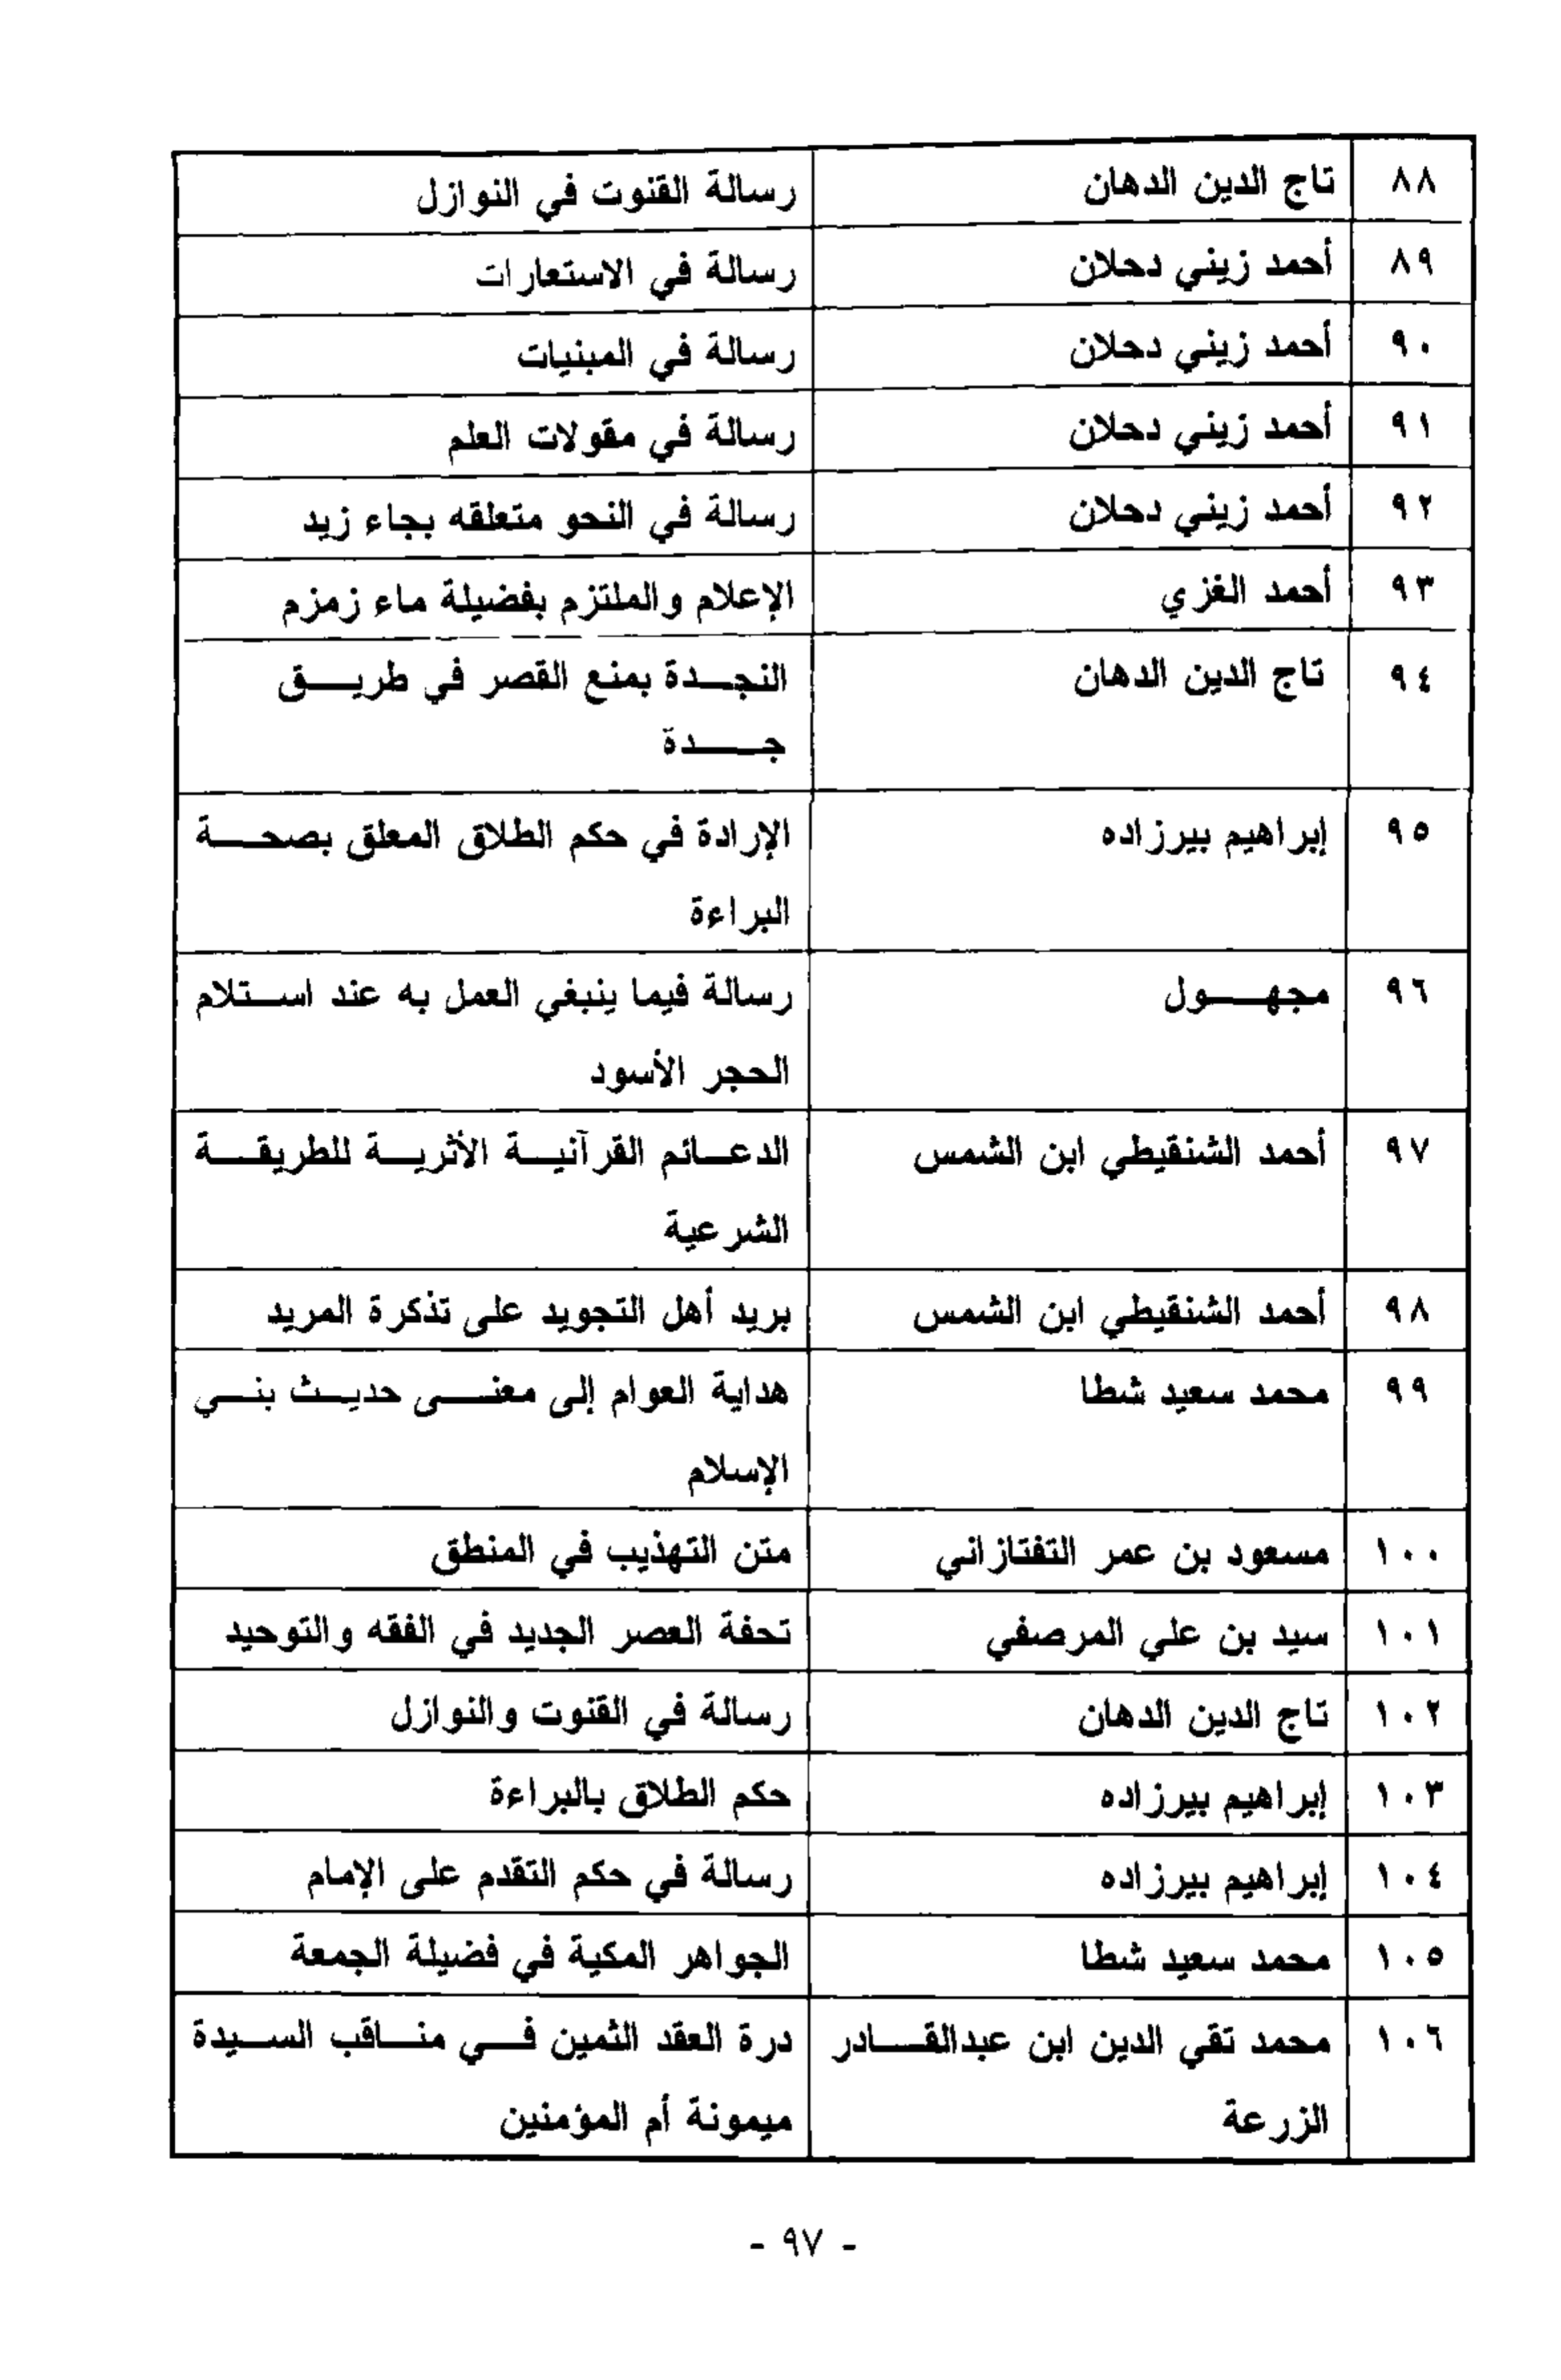 ٨٨ تاج الدين الدهان رسالة القنوت في النوازل
٨٩ أحمد زيني دحلان رسالة في الاستعارات
٩٠ أحمد زيني دحلان رسالة في المبنيات
٩١ أحمد زيني دحلان رسالة في مقولات العلم
٩٢ أحمد زيني دحلان رسالة في النحو متعلقه بجاء زيد
٩٣ أحمد الغزي الإعلام والملتزم بفضيلة ماء زمزم
٩٤ تاج الدين الدهان النجدة بمنع القصر في طريق
جدة
٩٥ إبراهيم بيرزاده الإرادة في حكم الطلاق المعلق بصحة
البراءة
٩٦ مجهول رسالة فيما ينبغي العمل به عند استلام
الحجر الأسود
٩٧ أحمد الشنقيطي ابن الشمس الدعائم القرآنية الأثرية للطريقة
الشرعية
٩٨ أحمد الشنقيطي ابن الشمس بريد أهل التجويد على تذكرة المريد
٩٩ محمد سعيد شطا هداية العوام إلى معنى حديث بني
الإسلام
١٠٠ مسعود بن عمر التفتازاني متن التهذيب في المنطق
١٠١ سيد بن علي المرصفي تحفة العصر الجديد في الفقه والتوحيد
١٠٢ تاج الدين الدهان رسالة في القنوت والنوازل
١٠٣ إبراهيم بيرزاده حكم الطلاق بالبراءة
١٠٤ إبراهيم بيرزاده رسالة في حكم التقدم على الإمام
١٠٥ محمد سعيد شطا الجواهر المكية في فضيلة الجمعة
١٠٦ محمد تقي الدين ابن عبدالقادر درة العقد الثمين في مناقب السيدة
الزرعة ميمونة أم المؤمنين
- ٩٧ -